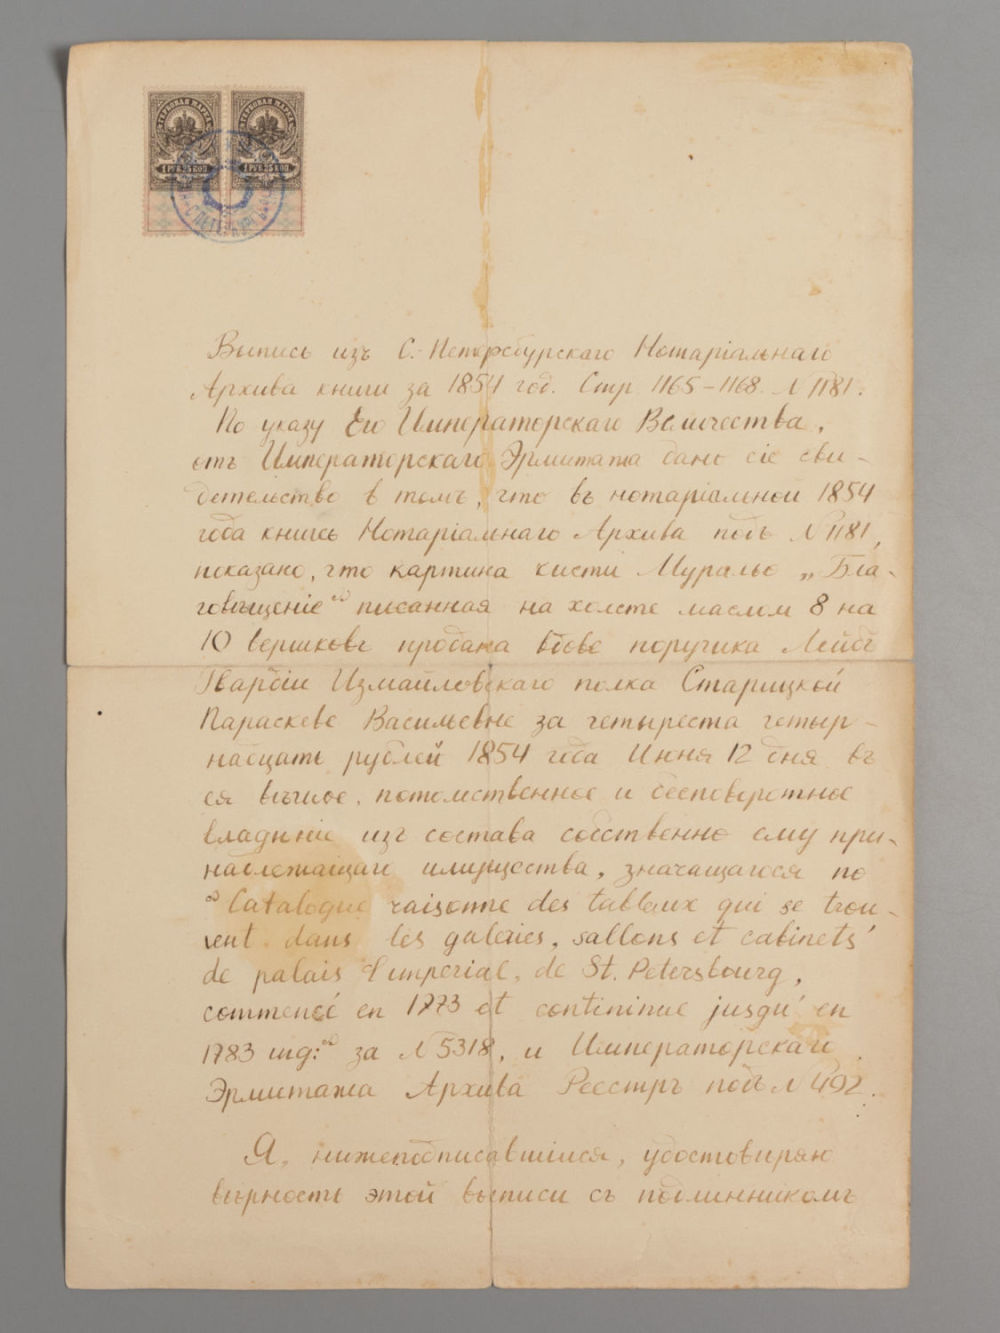 ГЕРБОВАЯ МАРКА ГЕРБОВАЯ МАРКА
1 РУБ. 25 КОП. 1 РУБ. 25 КОП.
Выпись изъ С.-Петербургскаго Нотаріальнаго
Архива книги за 1854 год. Стр 1165–1168. N 1181.
По указу Его Императорскаго Величества,
отъ Императорскаго Эрмитажа дано сіе сви-
детельство в томъ, что въ нотаріальной 1854
года книгѣ Нотаріальнаго Архива подъ N 1181,
показано, что картина кисти Мурильо „Бла-
говѣщеніе“ писанная на холсте маслом 8 на
10 вершковъ продана вдове поручика Лейбъ
Гвардіи Измайловскаго полка Старицкой
Параскеве Васильевне за четыреста четыр-
надцать рублей 1854 года Июня 12 дня въ
ея вѣчное, потомственное и бесповоротное
владѣніе изъ состава собственно ему при-
надлежащаго имущества, значащагося по
“Catalogue raisonne des tableaux qui se trou-
vent dans les galeries, sallons et cabinets
de palais l'imperial, de St. Petersbourg,
commencé en 1773 et contininue jusqu' en
1783 ind:“ за N 5318, и Императорскаго
Эрмитажа Архива Реестръ подъ N 492.
Я, нижеподписавшийся, удостовѣряю
вѣрность этой выписи съ подлинникомъ